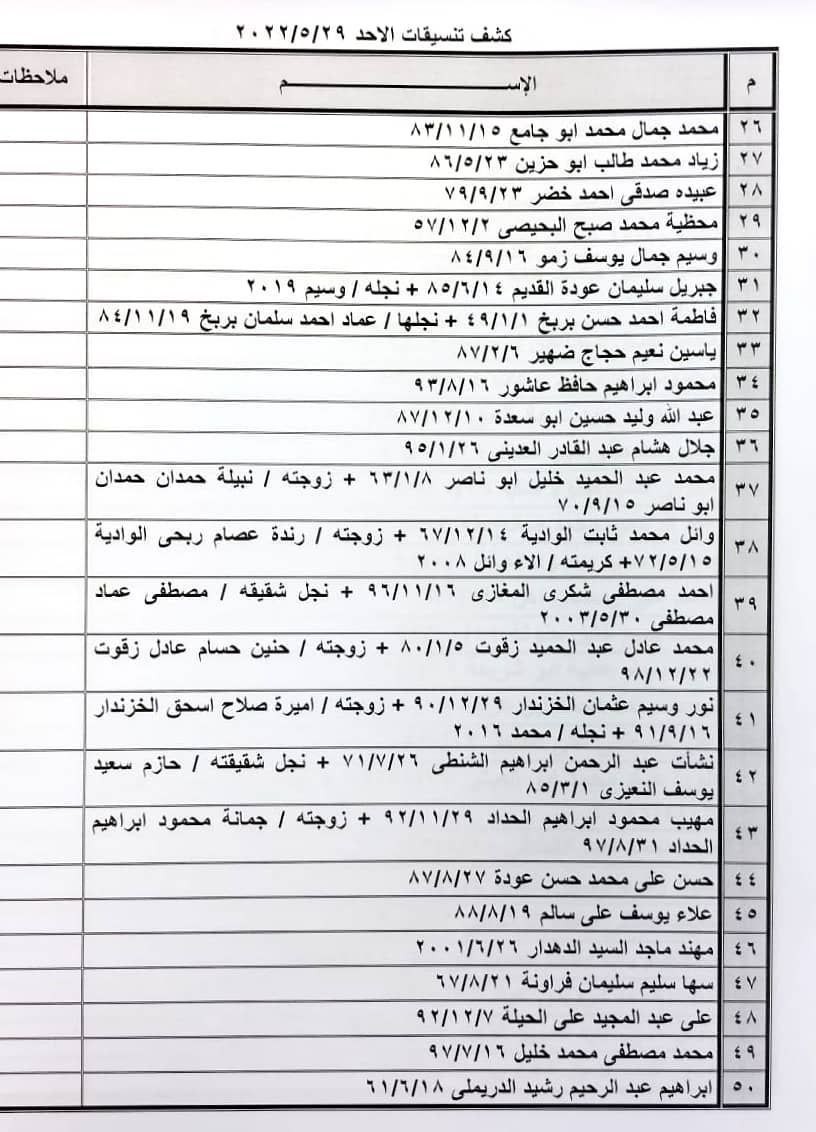 كشف تنسيقات الاحد ٢٠٢٢/٥/٢٩
م الإســـــــــم ملاحظات
٢٦ محمد جمال محمد ابو جامع ٨٣/١١/١٥
٢٧ زياد محمد طالب ابو حزين ٨٦/٥/٢٣
٢٨ عبيده صدقى احمد خضر ٧٩/٩/٢٣
٢٩ محظية محمد صبح البحيصى ٥٧/١٢/٢
٣٠ وسيم جمال يوسف زمو ٨٤/٩/١٦
٣١ جبريل سليمان عودة القديم ٨٥/٦/١٤ + نجله / وسيم ٢٠١٩
٣٢ فاطمة احمد حسن بربخ ٤٩/١/١ + نجلها / عماد احمد سلمان بربخ ٨٤/١١/١٩
٣٣ ياسين نعيم حجاج ضهير ٨٧/٢/٦
٣٤ محمود ابراهيم حافظ عاشور ٩٣/٨/١٦
٣٥ عبد الله وليد حسين ابو سعدة ٨٧/١٢/١٠
٣٦ جلال هشام عبد القادر العدينى ٩٥/١/٢٦
٣٧ محمد عبد الحميد خليل ابو ناصر ٦٣/١/٨ + زوجته / نبيلة حمدان حمدان
ابو ناصر ٧٠/٩/١٥
٣٨ وائل محمد ثابت الوادية ٦٧/١٢/١٤ + زوجته / رندة عصام ربحى الوادية
٧٢/٥/١٥+ كريمته / الاء وائل ٢٠٠٨
٣٩ احمد مصطفى شكرى المغازى ٩٦/١١/١٦ + نجل شقيقه / مصطفى عماد
مصطفى ٢٠٠٣/٥/٣٠
٤٠ محمد عادل عبد الحميد زقوت ٨٠/١/٥ + زوجته / حنين حسام عادل زقوت
٩٨/١٢/٢٢
٤١ نور وسيم عثمان الخزندار ٩٠/١٢/٢٩ + زوجته / اميرة صلاح اسحق الخزندار
٩١/٩/١٦ + نجله / محمد ٢٠١٦
٤٢ نشأت عبد الرحمن ابراهيم الشنطى ٧١/٧/٢٦ + نجل شقيقته / حازم سعيد
يوسف النعيزى ٨٥/٣/١
٤٣ مهيب محمود ابراهيم الحداد ٩٢/١١/٢٩ + زوجته / جمانة محمود ابراهيم
الحداد ٩٧/٨/٣١
٤٤ حسن على محمد حسن عودة ٨٧/٨/٢٧
٤٥ علاء يوسف على سالم ٨٨/٨/١٩
٤٦ مهند ماجد السيد الدهدار ٢٠٠١/٦/٢٦
٤٧ سها سليم سليمان فراونة ٦٧/٨/٢١
٤٨ على عبد المجيد على الحيلة ٩٢/١٢/٧
٤٩ محمد مصطفى محمد خليل ٩٧/٧/١٦
٥٠ ابراهيم عبد الرحيم رشيد الدريملى ٦١/٦/١٨